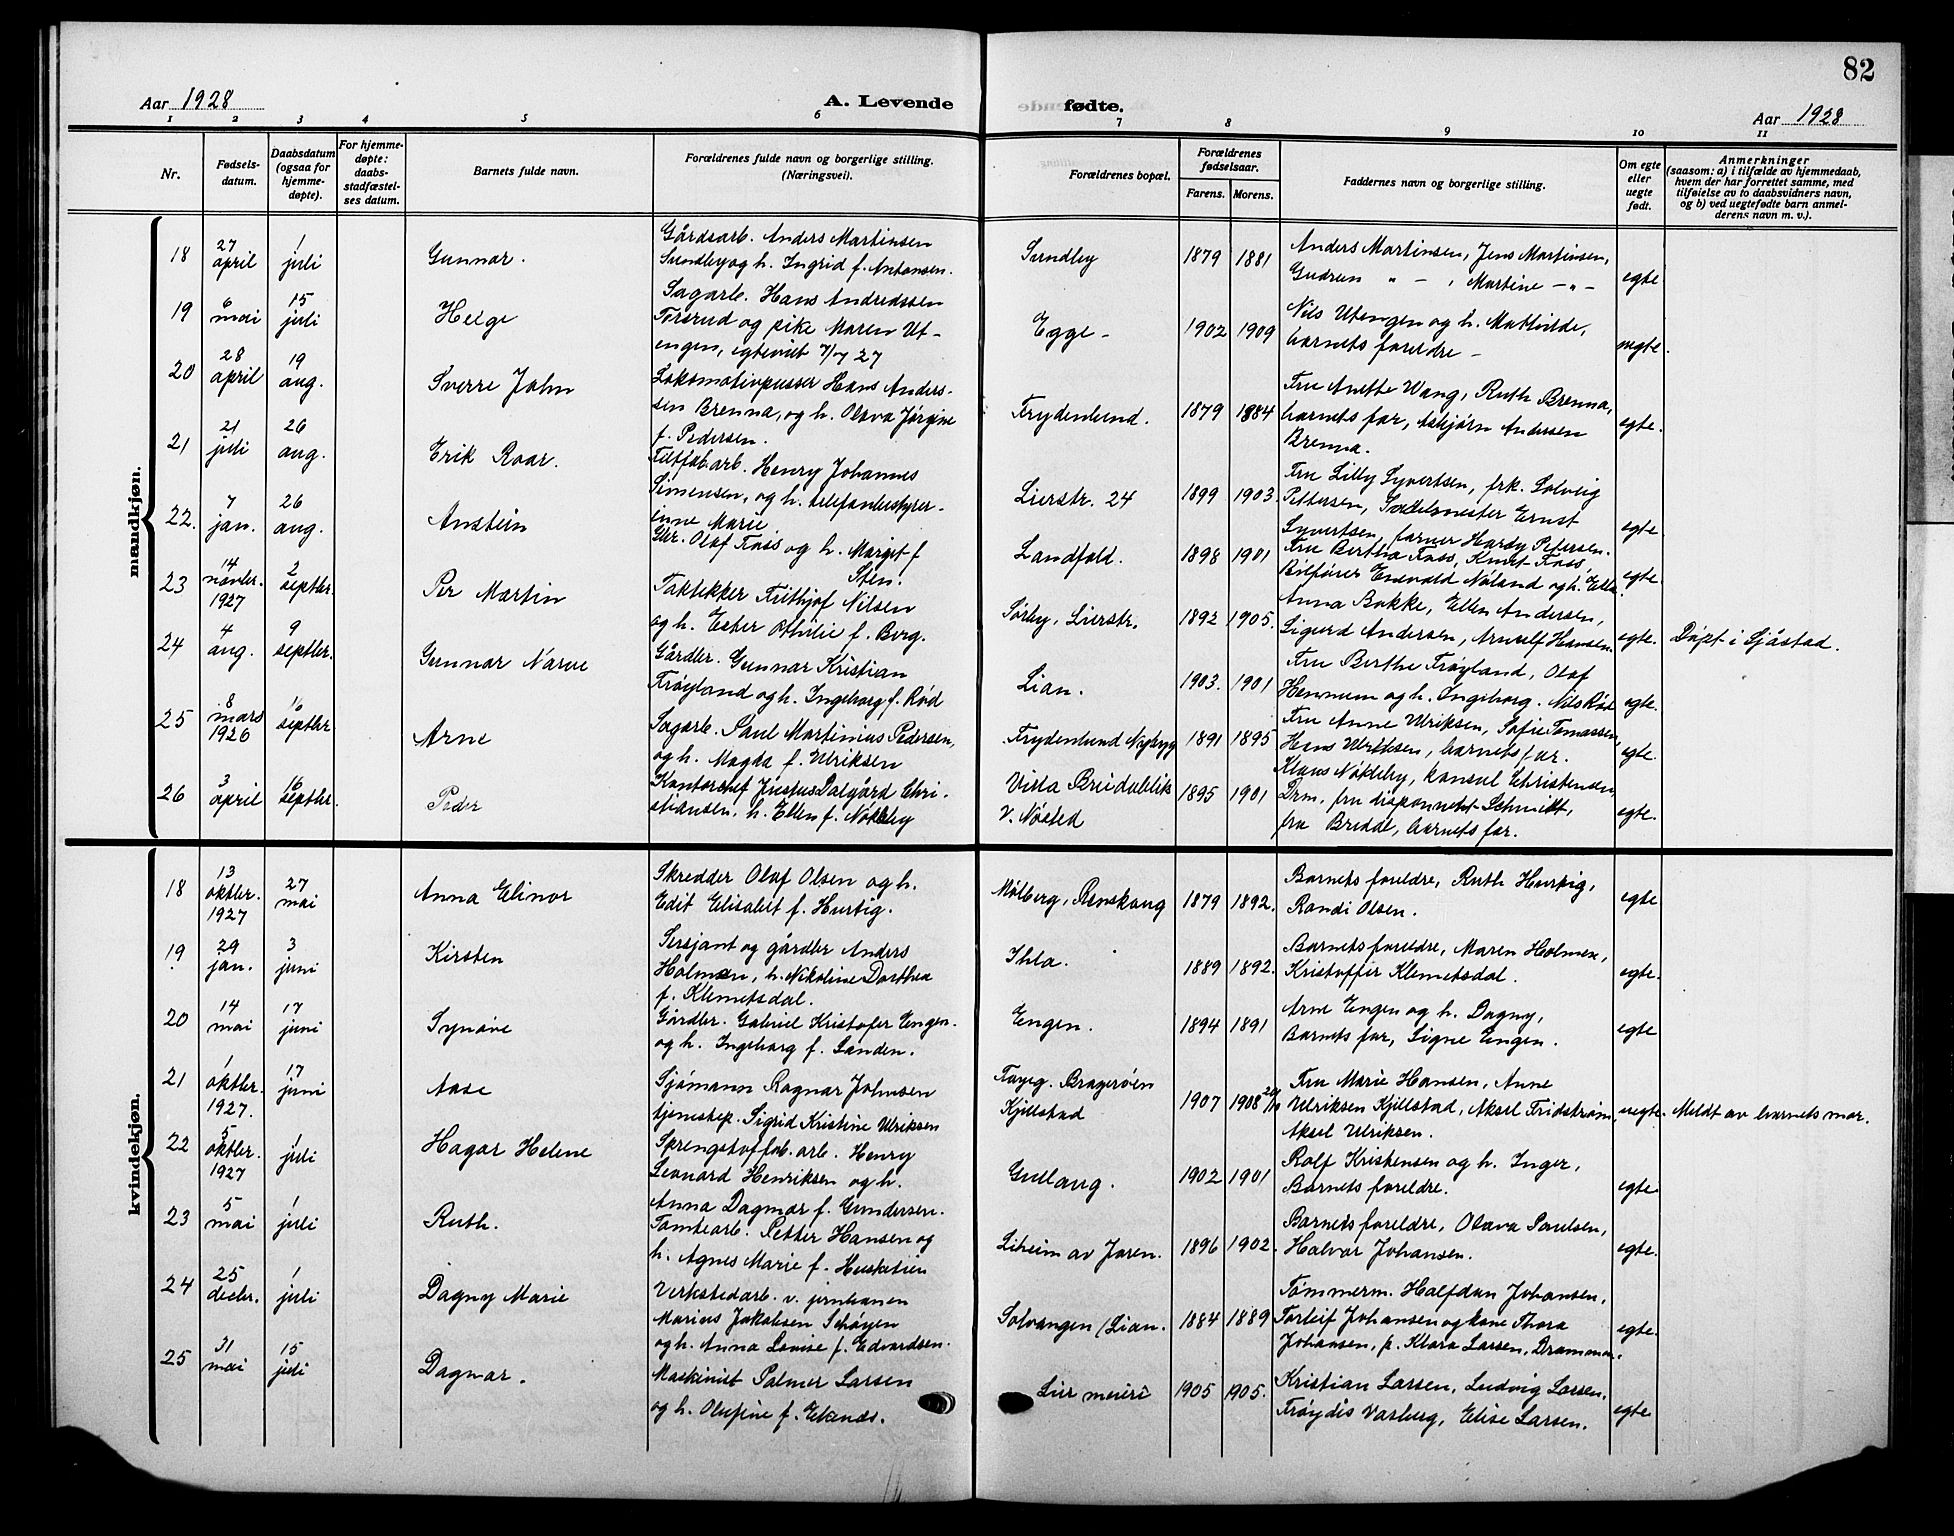 82
Aar 1928
A. Levende fødte.
Aar 1928
1 2 3 4 5 6 7 8 9 10 11
Nr.
Fødsels-
datum.
Daabsdatum
(ogsaa for
hjemme-
døpte).
For hjemme-
døpte:
daabs-
stadfæstel-
ses datum.
Barnets fulde navn.
Forældrenes fulde navn og borgerlige stilling.
(Næringsvei).
Forældrenes bopæl.
Forældrenes
fødselsaar.
Farens. Morens.
Faddernes navn og borgerlige stilling.
Om egte
eller
uegte
født.
Anmerkninger
(saasom: a) i tilfælde av hjemmedaab,
hvem der har forrettet samme, med
tilføielse av to daabsvidners navn,
og b) ved uegtefødte barn anmel-
derens navn m. v.).
mandkjøn.
18 27 april 1 juli Gunnar.
Gårdsarb. Anders Martinsen
Sundby og h. Ingrid f. Antonsen.
Sundby 1879 1881
Anders Martinsen, Jens Martinsen,
Gudrun " - , Martine - " -
egte
19 6 mai 15 juli Helge
Sagarb. Hans Andreassen
Torsrud og pike Maren Ut-
engen, egteviet 7/7 27
Egge - 1902 1909
Nils Utengen og h. Mathilde,
barnets foreldre -
uegte.
20 28 april 19 aug. Sverre John
Lokomotivpusser Hans Anders-
sen Brenna, og h. Olava Jørgine
f. Pedersen.
Frydenlund. 1879 1884
Fru Anette Wang, Ruth Brenna,
barnets far, Asbjørn Andersen
Brenna.
egte.
21 21 juli 26 aug. Erik Roar.
Filtfab.arb. Henry Johannes
Simensen, og h. telefonbestyrer-
inne Marie
Lierstr. 24 1899 1903.
Fru Lilly Syvertsen, frk. Solveig
Pettersen, Sadelmester Ernst
Syvertsen, farver Hardy Petersen.
egte
22. 7 jan. 26 aug. Anstein
Gbr. Olaf Foss og h. Margit f.
Sten.
Landfald. 1898 1901
Fru Bertha Foss, Knut Foss,
Bilfører Enevald Nøland og h. Ella.
egte.
23 14 novbr. 1927 2 septbr. Per Martin
Taktekker Frithjof Nilsen
og h. Ester Othilie f. Berg.
Sørby, Lierstr. 1892 1905.
Anna Bakke, Ellen Andersen,
Sigurd Andersen, Arnulf Hansen.
egte. Døpt i Sjåstad.
24 4 aug. 9 septbr. Gunnar Narve
Gårdbr. Gunnar Kristian
Frøyland og h. Ingeborg f. Rød
Lian. 1903. 1901
Fru Berthe Frøyland, Olaf
Hennum og h. Ingeborg. Nils Rød
egte.
25 8 mars 1926 16 septbr. Arne
Sagarb. Paul Martinius Pedersen,
og h. Magda f. Ulriksen
Frydenlund Nybygg 1891 1895
Fru Anne Ulriksen, Sofie Tomassen,
Hans Ulriksen, barnets far.
egte.
26 3 april 16 septbr. Peder
Kontorchef Justus Dalgård Chri-
stiansen, h. Ellen f. Nøkleby
Villa Breidablik
v. Nøsted
1895 1901
Klaus Nøkleby, konsul Christensen
Drm, fru disponent Schmidt,
fru Bredde, barnets far.
egte.
kvindekjøn.
18 13 oktbr. 1927 27 mai Anna Elinor
Skredder Olaf Olsen og h.
Edit Elisabet f. Hurtig.
Mølberg, Renskaug 1879 1892.
Barnets foreldre, Ruth Hurtig,
Randi Olsen.
egte
19 29 jan. 3 juni Kirsten
Sersjant og gårdbr Anders
Holmen, h. Nikoline Dorthea
f. Klemetsdal.
Ihla. 1889 1892.
Barnets foreldre, Maren Holmen,
Kristoffer Klemetsdal.
egte.
20 14 mai 17 juni Synøve
Gårdbr. Gabriel Kristofer Engen.
og h. Ingeborg f. Landen.
Engen. 1894 1891
Arne Engen og h. Dagny,
Barnets far, Signe Engen.
egte
21 1 oktbr. 1927. 17 juni Aase
Sjømann Ragnar Johnsen
tjenestep. Sigrid Kristine Ulriksen
Fayeg. Bragerøen
Kjellstad
1907 1908 20/10
Fru Marie Hansen, Anne
Ulriksen Kjellstad, Aksel Fridstrøm,
Aksel Ulriksen.
uegte. Meldt av barnets mor.
22 5 oktbr. 1927 1 juli Hagar Helene
Sprengstoffab. arb. Henry
Leonard Henriksen og h.
Anna Dagmar f. Gundersen.
Gullaug. 1902 1901
Rolf Kristensen og h. Inger,
Barnets foreldre.
egte
23 5 mai 1 juli Ruth.
Tomtearb. Petter Hansen og
h. Agnes Marie f. Huskelien
Liheim av Joren. 1896 1902.
Barnets foreldre, Olava Paulsen,
Halvor Johansen.
egte.
24 25 decbr. 1 juli Dagny Marie
Verkstedarb. v. jernbanen
Marius Jakobsen Schøyen
og h. Anna Lovise f. Edvardsen.
Solvangen (Lian. 1884 1889
Tømmerm. Halfdan Johansen,
Torleif Johansen og kone Thora
Johansen, p. Klara Larsen, Drammen.
egte.
25 31 mai 15 juli Dagmar.
Maskinist Palmer Larsen
og h. Olufine f. Eknes.
Lier meieri 1905 1905.
Kristian Larsen, Ludvig Larsen,
Frøydis Varberg, Elise Larsen.
egte